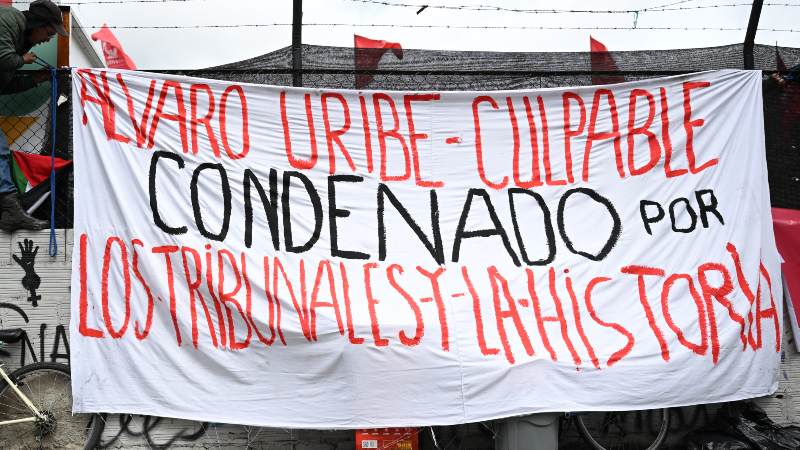 ALVARO URIBE - CULPABLE
CONDENADO POR
LOS-TRIBUNALES-Y-LA-HISTORIA